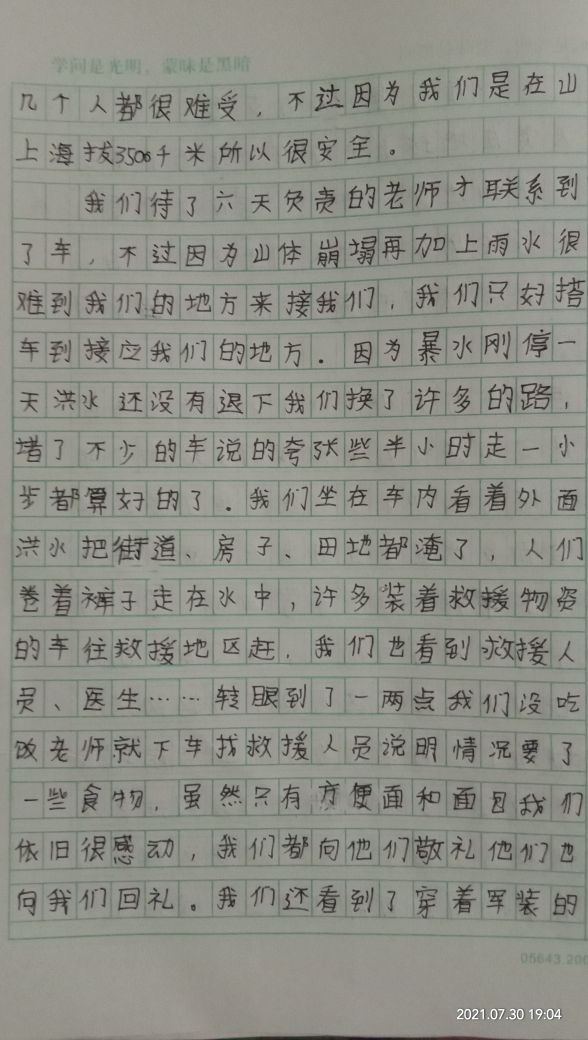 学问是光明，蒙昧是黑暗
几个人都很难受，不过因为我们是在山
上海拔3506千米所以很安全。
我们待了六天负责的老师才联系到
了车，不过因为山体崩塌再加上雨水很
难到我们的地方来接我们，我们只好搭
车到接应我们的地方．因为暴水刚停一
天洪水还没有退下我们换了许多的路，
堵了不少的车说的夸张些半小时走一小
步都算好的了．我们坐在车内看着外面
洪水把街道、房子、田地都淹了，人们
卷着裤子走在水中，许多装着救援物资
的车往救援地区赶．我们也看到救援人
员、医生……转眼到了一两点我们没吃
饭老师就下车找救援人员说明情况要了
一些食物，虽然只有方便面和面包我们
依旧很感动，我们都向他们敬礼他们也
向我们回礼。我们还看到了穿着军装的
05643.200
2021.07.30 19:04